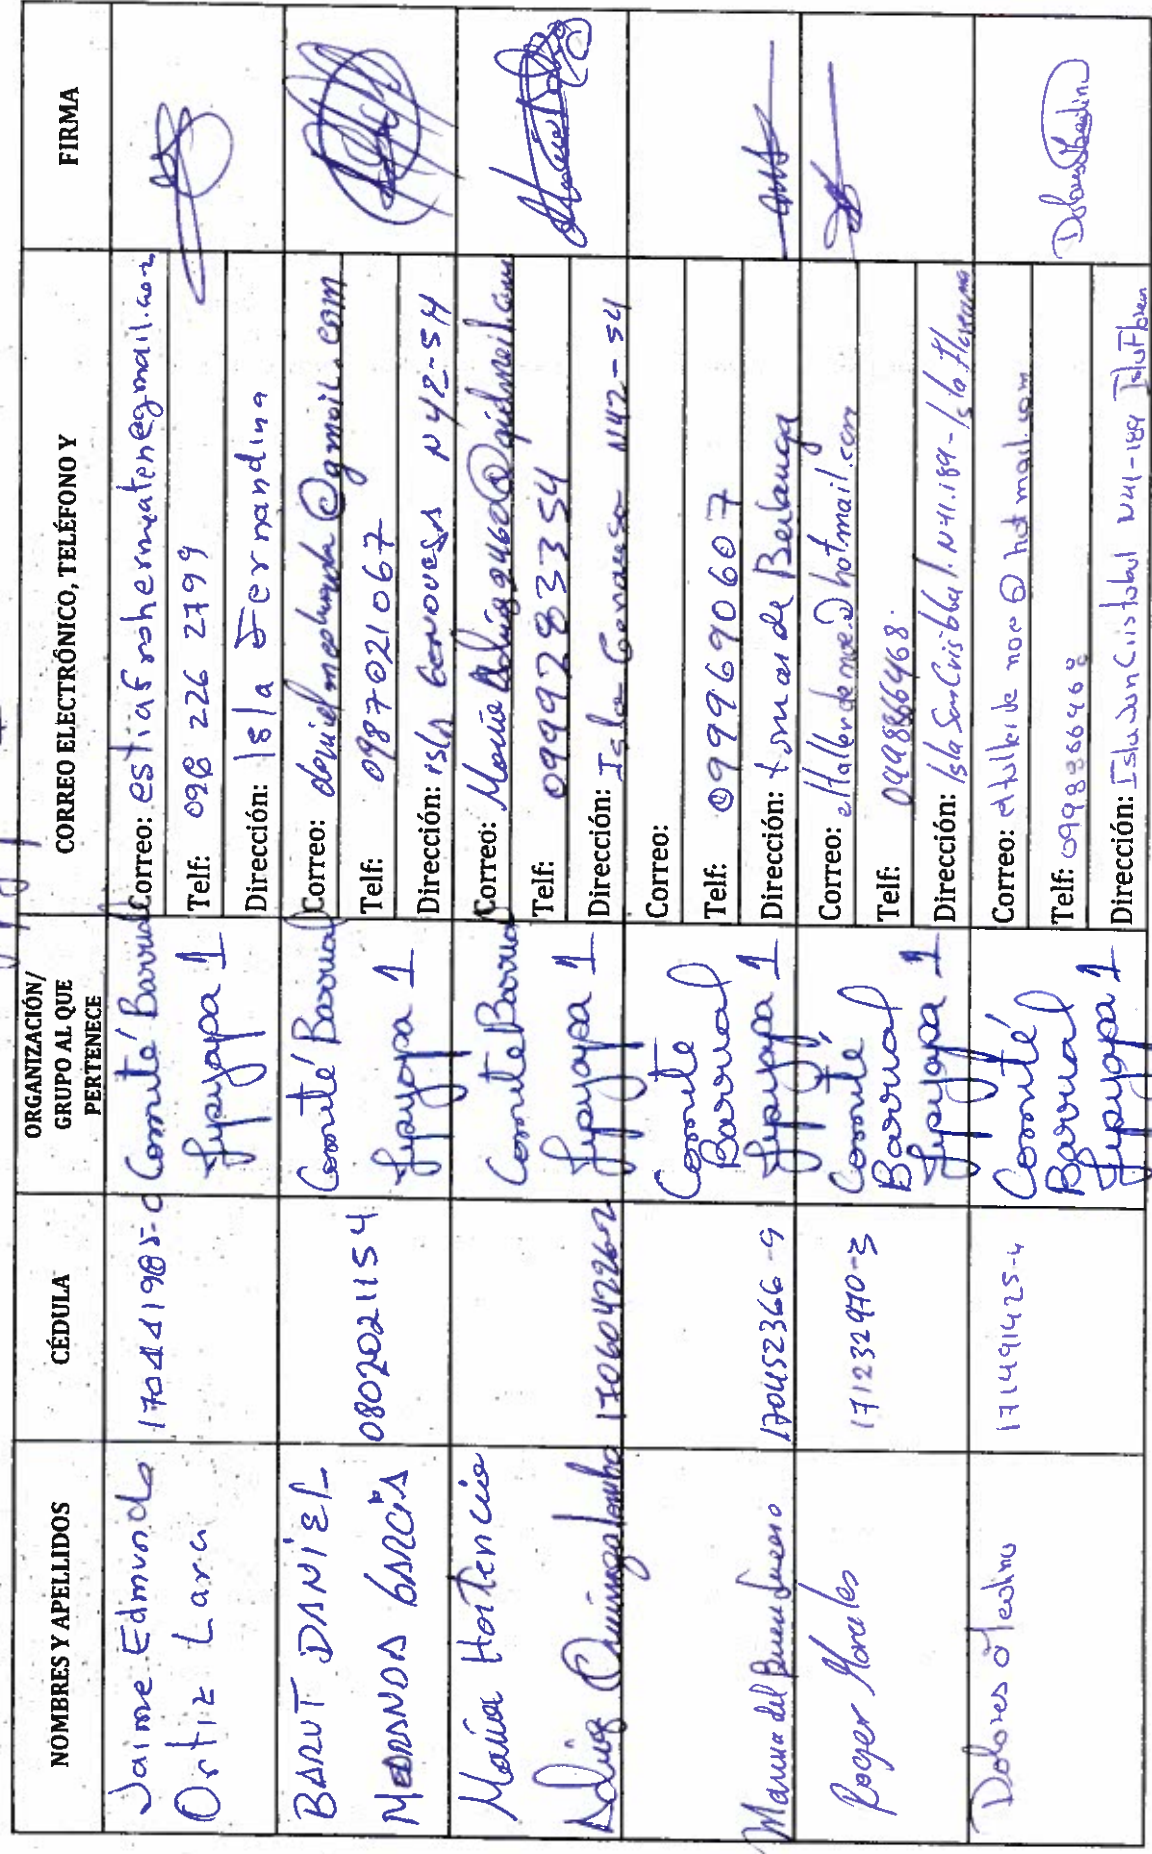 NOMBRES Y APELLIDOS
CÉDULA
ORGANIZACIÓN/
GRUPO AL QUE
PERTENECE
CORREO ELECTRÓNICO, TELÉFONO Y
FIRMA
Jaime Edmundo
Ortiz Lara
170441985-0
Comité Barrial
Jipijapa 1
Correo:
Telf: 098 226 2799
Dirección: Isla Fernandina
BARUT DANIEL
GARCIA
0802021154
Comité Barrial
Jipijapa 1
Correo:
Telf: 0987021067
Dirección: isla Genovesa N42-54
María Hortencia
1706042262
Comité Barrial
Jipijapa 1
Correo:
Telf: 0999283354
Dirección: Isla Genovesa N42-54
170452366-9
Comité
Barrial
Jipijapa 1
Correo:
Telf: 0999690607
Dirección: tomas de Berlanga
Roger Morales
171232970-3
Comité
Barrial
Jipijapa 1
Correo: eltallerdenoe@hotmail.com
Telf: 0998866468
Dirección: Isla San Cristobal. N41.189-Isla Floreana
Dolores
171491425-4
Comité
Barrial
Jipijapa 1
Correo: @hotmail.com
Telf: 0998866468
Dirección: Isla San Cristobal N41-189